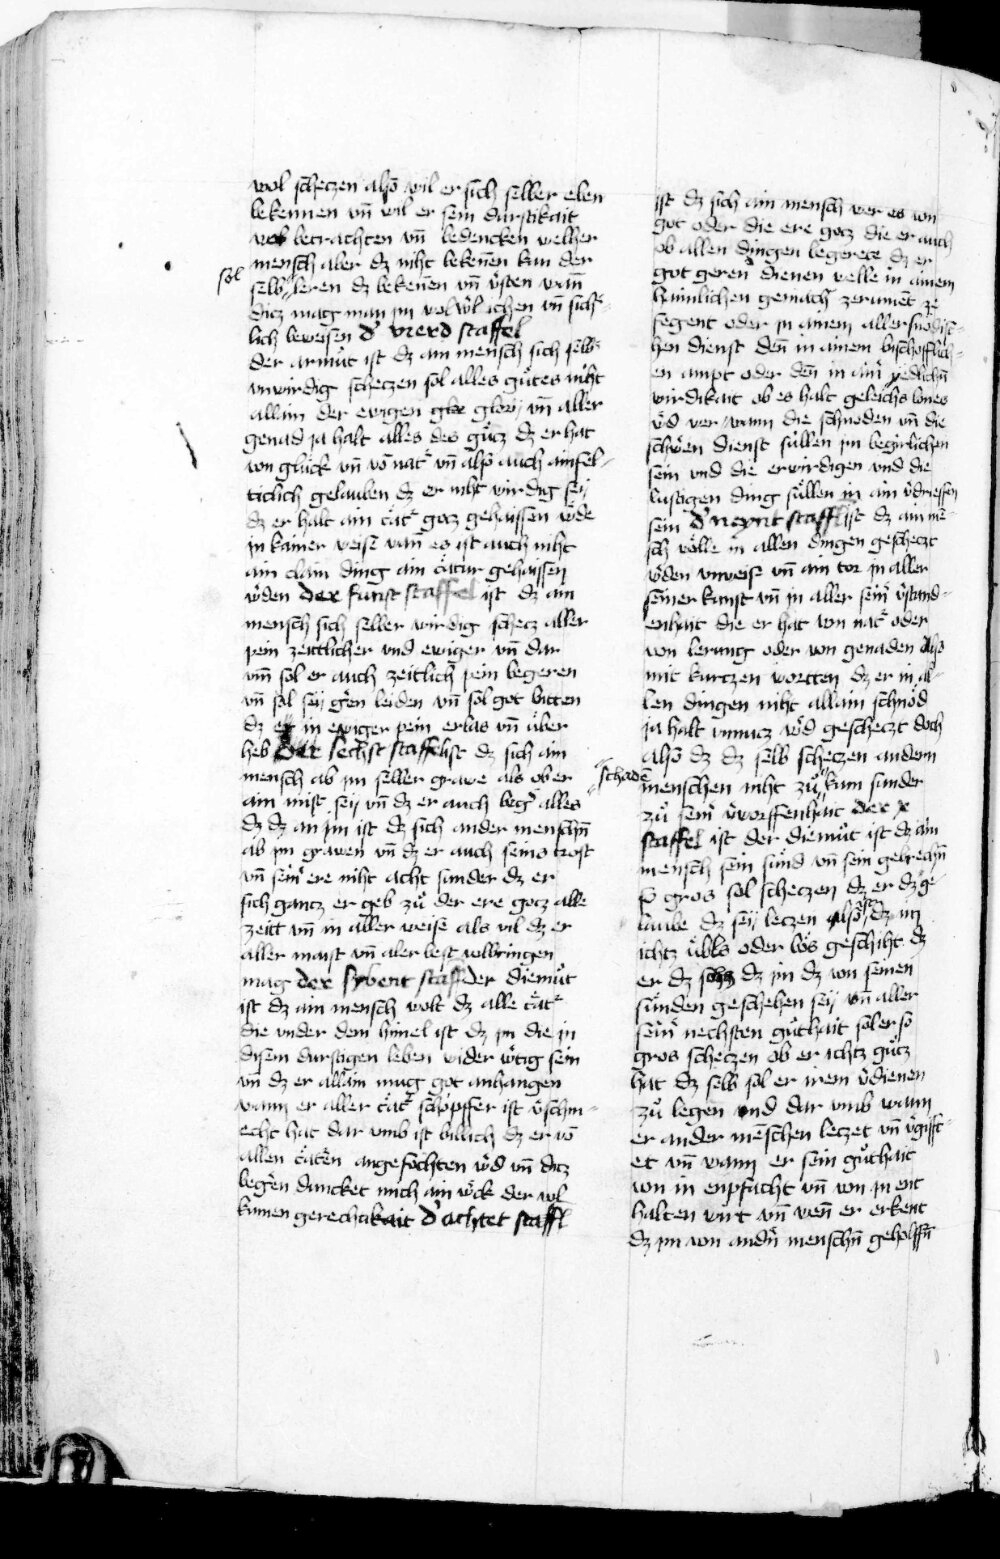 wol scheczen also wil er sich selber eben
bekennen vn̄ wil er sein durftikait
wol betrachten vn̄ bedencken welher
mensch aber dz niht bekenen kan der
sol
selb leren dz bekenen vn̄ vͦsten wan̄
dicz mag man im wol vnd sich
lich beweisen dˀ vierd staffel
der armuͤt ist dz ain mensch sich selbˀ
vnwirdig scheczen sol alles guͤtes niht
allain der ewigen glorj vn̄ aller
genad ja halt alles des guͤcz dz er hat
von gluͤck vn̄ vō natˀ vn̄ also auch ainfel-
tiklich gelauben dz er niht wirdig seÿ
dz er halt ain cͣatˀ gocz gehaissen wˀde
in kainer weise wan̄ es ist auch niht
ain clain ding ain cͣatur gehaissen
wˀden der funft staffel ist dz ain
mensch sich selber wirdig schecz aller
pein zeittlicher vnd ewiger vn̄ dar
vm̄ sol er auch zeitlich pein begeren
vn̄ sol seÿ gͤn leiden vn̄ sol got bitten
dz er in ewiger pein erlas vn̄ uͤber
heb der sechst staffel ist dz sich ain
mensch ab im selber grawe als ob er
ain mist seÿ vn̄ dz er auch begˀ alles
dz dz an im ist dz sich ander menschn̄
ab im grawen vn̄ dz er auch seins trost
vn̄ seinˀ ere niht acht sunder dz er
sich gancz er geb zuͦ der ere gocz alle
zeitt vn̄ in aller weise als vil dz er
aller maist vn̄ aler best volbringen
mag der sybent staff der diemuͤt
ist dz ain mensch wolt dz alle cͣatˀ
die vnder dem himel ist dz im die in
disem durftigen leben wider wˀtig sein
vn̄ dz er allain mug got anhangen
wann er aller cͣatˀ schöpffer ist vˀschm-
echt hat dar vmb ist billich dz er vō
allen cͣatˀn angefochten wˀd vn̄ dicz
begˀn duncket mich ain wˀck der vol
kumen gerechtikait dˀ achtet staffl
ist dz sich ain mensch wer es von
got oder die ere gocz die er auch
ob allen dingen begerete dz er
got geren dienen welle in ainem
haimlichen gemach
segent oder in ainem aller snodis-
hen dienst den̄ in ainem bischofflich-
en ampt oder den̄ in ainˀ yedlichn̄
wirdikait ob es halt geleichs lones
wˀd wer wann die schnoden vn̄ die
schwˀen dienst suͤllen im begirlichen
sein vnd die erwirdigen vnd die
lustigen ding suͤllen in ain vˀdriessen
sein dˀ neynt staffl ist dz ain mē-
sch woͤlle in allen dingen geschecze
wˀden vnweise vn̄ ain tor in aller
seiner kunst vn̄ in aller seinˀ vˀstand-
enhait die er hat von natˀ oder
von lerung oder von genaden Also
mit kurczen wortten dz er in al-
len dingen niht allain schnöd
ja halt vnnucz wˀd gescheczt doch
also dz dz selb scheczen andern
schaden
menschen niht zuͦ kum sunder
zuͦ seinˀ vˀworffenhait der x
staffel ist der diemuͤt ist dz ain
mensch sein sünd vn̄ sein gebrechn̄
so gros sol scheczen dz er dz ge-
laube dz seÿ leczen also ist dz im
ichtz uͤbls oder boͤs geschiht dz
er dz schecz dz im dz von seinen
suͤnden geschehen seÿ vn̄ aller
seinˀ nechsten guͤthait sol er so
gros scheczen ob er ichtz guͤcz
hat dz selb sol er irem vˀdienen
zuͦ legen vnd dar vmb wann
er ander menschen leczet vn̄ vˀgifft-
et vn̄ wann er sein guͤthait
von in enpfacht vn̄ von in ent
halten wirt vn̄ wen̄ er erkent
dz im von andˀn menschn̄ geholffn̄